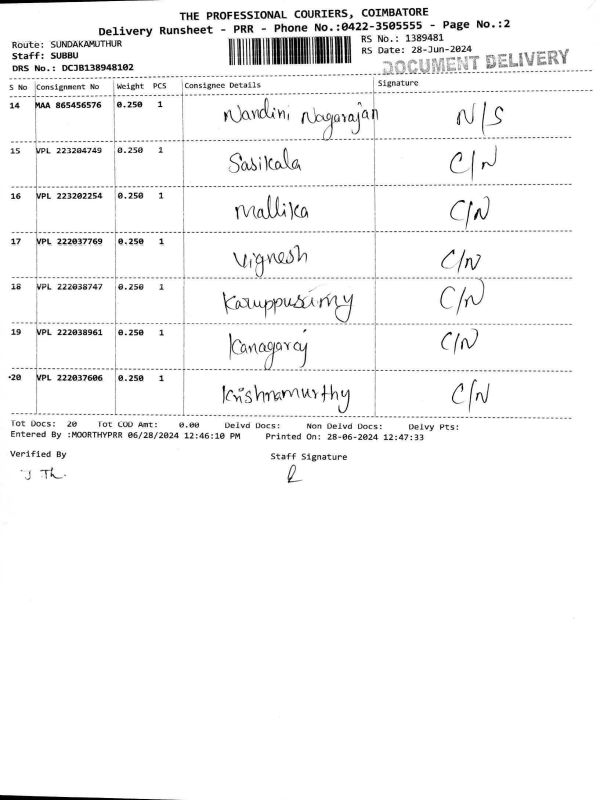 THE PROFESSIONAL COURIERS, COIMBATORE
Delivery Runsheet - PRR - Phone No.:0422-3505555 - Page No.:2
Route: SUNDAKAMUTHUR RS No.: 1389481
Staff: SUBBU RS Date: 28-Jun-2024
DRS No.: DCJB138948102 DOCUMENT DELIVERY
S No Consignment No Weight PCS Consignee Details Signature
14 MAA 865456576 0.250 1 Nandini Nagarajan N/S
15 VPL 223204749 0.250 1 Sasikala C/N
16 VPL 223202254 0.250 1 Mallika C/N
17 VPL 222037769 0.250 1 Vignesh C/N
18 VPL 222038747 0.250 1 Karuppusamy C/N
19 VPL 222038961 0.250 1 Kanagaraj C/N
20 VPL 222037606 0.250 1 Krishnamurthy C/N
Tot Docs: 20 Tot COD Amt: 0.00 Delvd Docs: Non Delvd Docs: Delvy Pts:
Entered By :MOORTHYPRR 06/28/2024 12:46:10 PM Printed On: 28-06-2024 12:47:33
Verified By Staff Signature